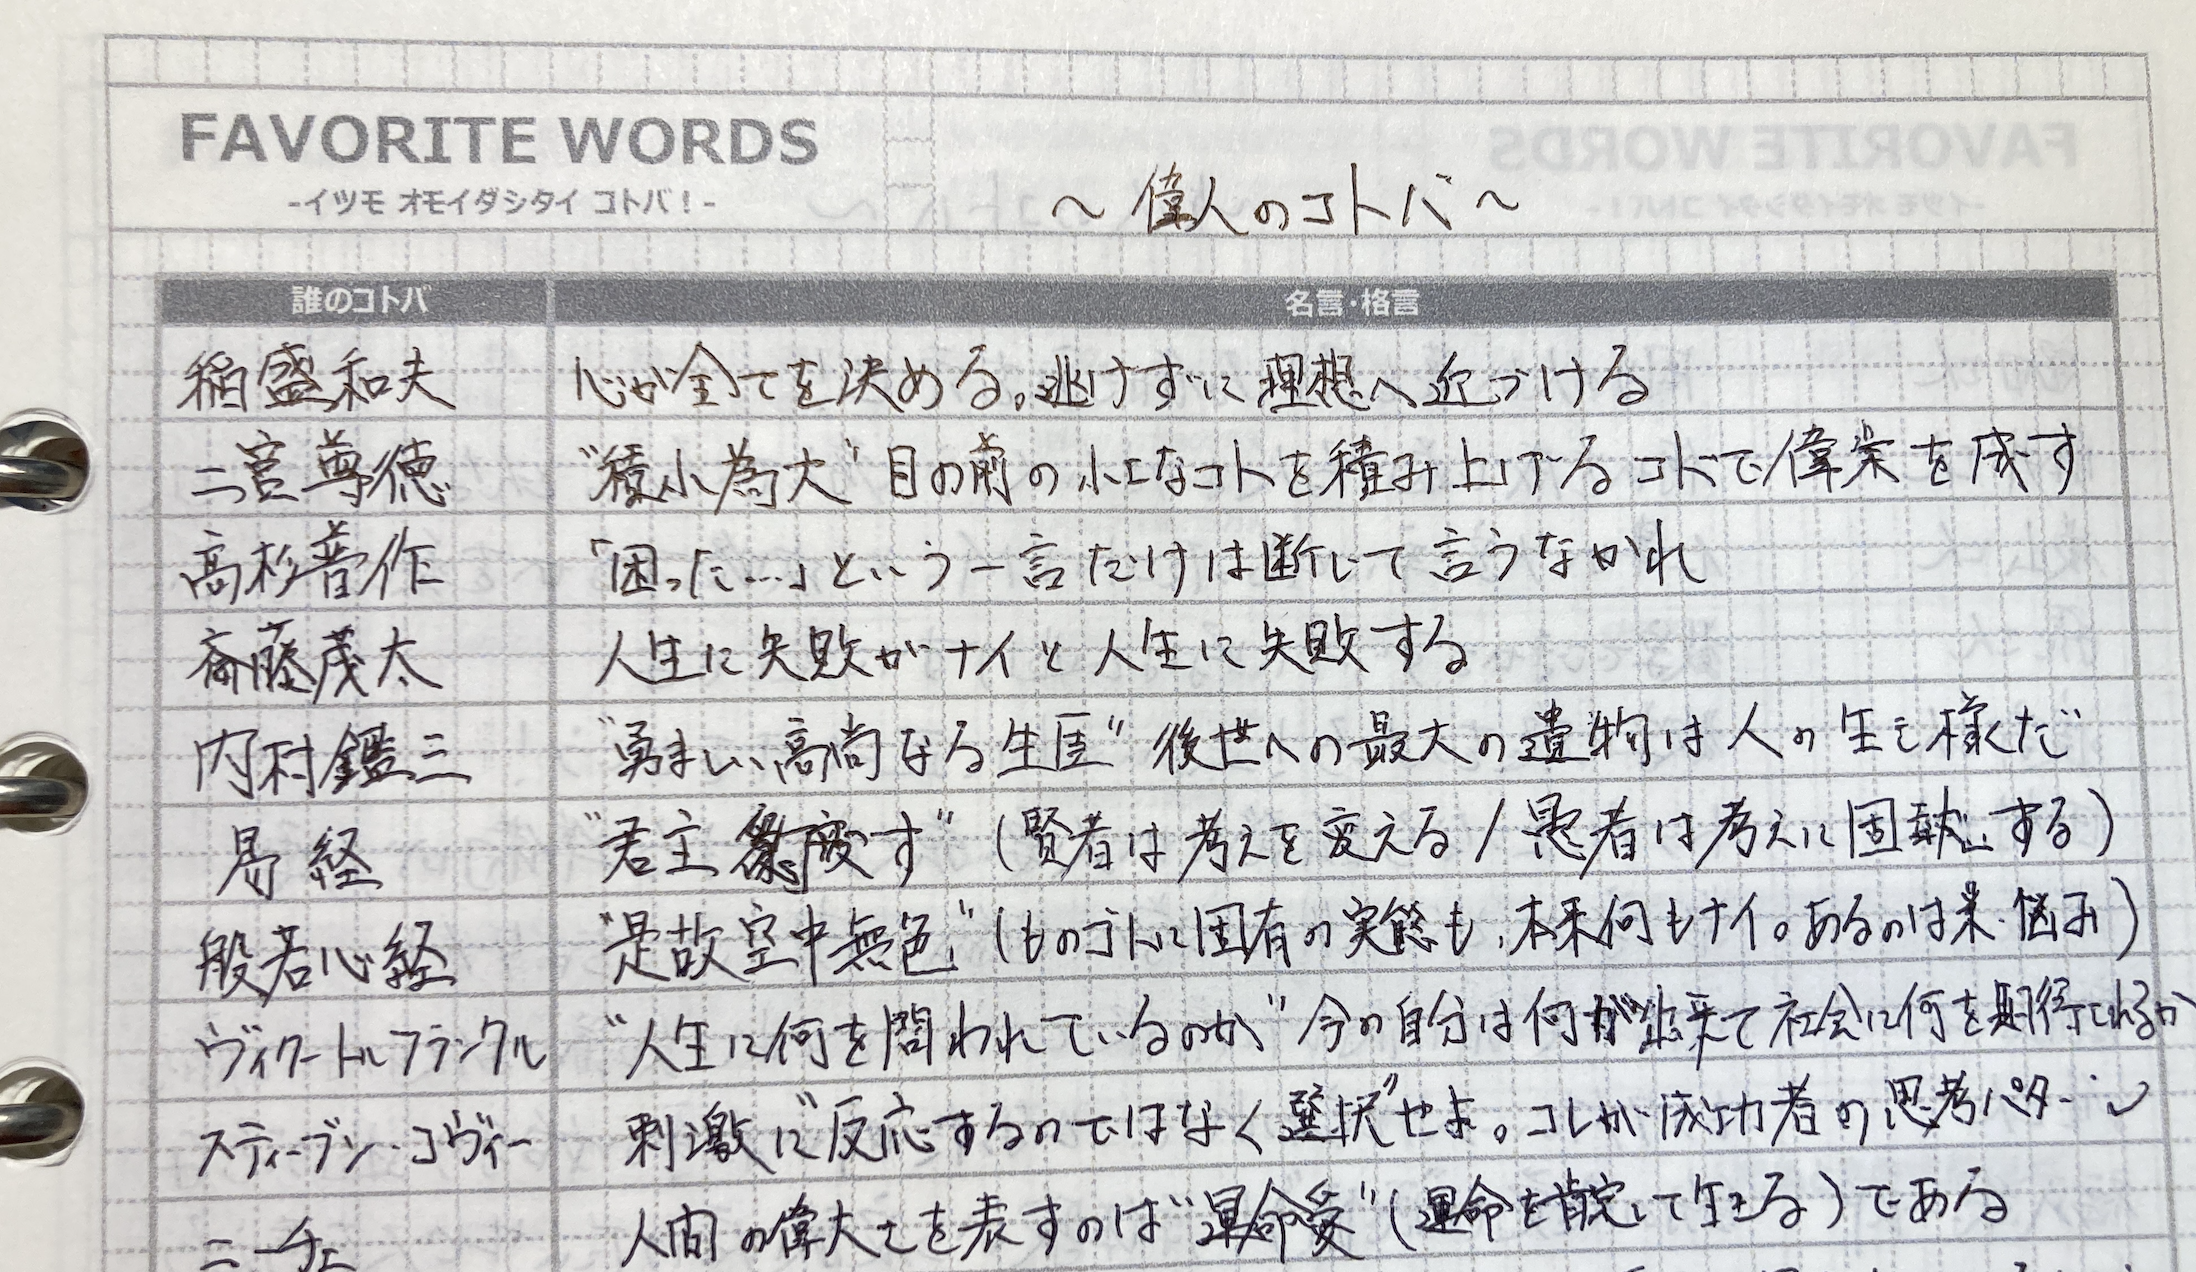 FAVORITE WORDS
-イツモ オモイダシタイ コトバ！-
～偉人のコトバ～
誰のコトバ 名言・格言
稲盛和夫 心が全てを決める。逃げずに理想へ近づける
二宮尊徳 “積小為大” 目の前の小さなコトを積み上げるコトで偉業を成す
高杉晋作 「困った…」という一言だけは断じて言うなかれ
斎藤茂太 人生に失敗がナイと人生に失敗する
内村鑑三 “勇ましい高尚なる生涯” 後世への最大の遺物は人の生き様だ
易経 “君主豹変す” (賢者は考えを変える/愚者は考えに固執する)
般若心経 “是故空中無色” (ものゴトに固有の実態も、本来何もナイ。あるのは業・悩み)
ヴィクートルフランクル “人生に何を問われているのか” 今の自分は何が出来て社会に何を期待されるか
スティーブン・コヴィー 刺激に“反応するのではなく選択”せよ。コレが成功者の思考パターン
ニーチェ 人間の偉大さを表すのは“運命愛” (運命を肯定して生きる)である